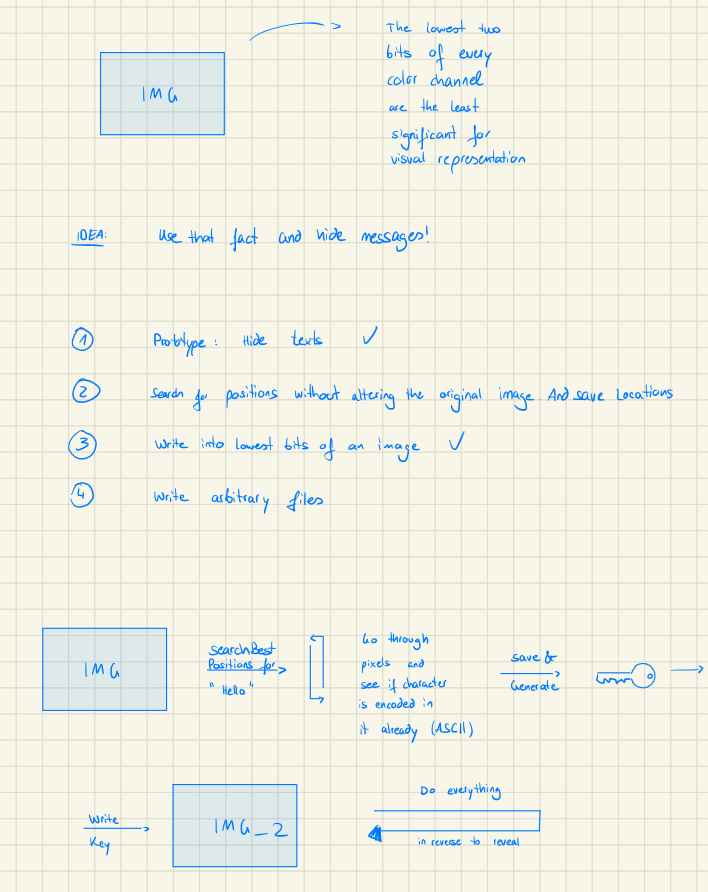 IMG
The lowest two
bits of every
color channel
are the least
significant for
visual representation
IDEA:
Use that fact and hide messages!
1 Prototype: Hide texts ✓
2 Search for positions without altering the original image And save Locations
3 Write into lowest bits of an image ✓
4 Write arbitrary files
IMG
searchBest
Positions for
"Hello"
Go through
pixels and
see if character
is encoded in
it already (ASCII)
save &
Generate
Write
Key
IMG_2
Do everything
in reverse to reveal